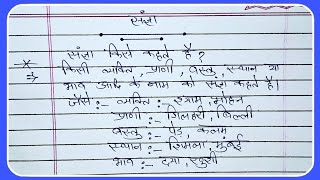 संज्ञा
संज्ञा किसे कहते हैं?
किसी व्यक्ति, प्राणी, वस्तु, स्थान या
भाव आदि के नाम को संज्ञा कहते है।
जैसे:- व्यक्ति :- श्याम, मोहन
प्राणी :- गिलहरी, बिल्ली
वस्तु :- पेड़, कलम
स्थान :- शिमला, मुंबई
भाव :- दया, खुशी